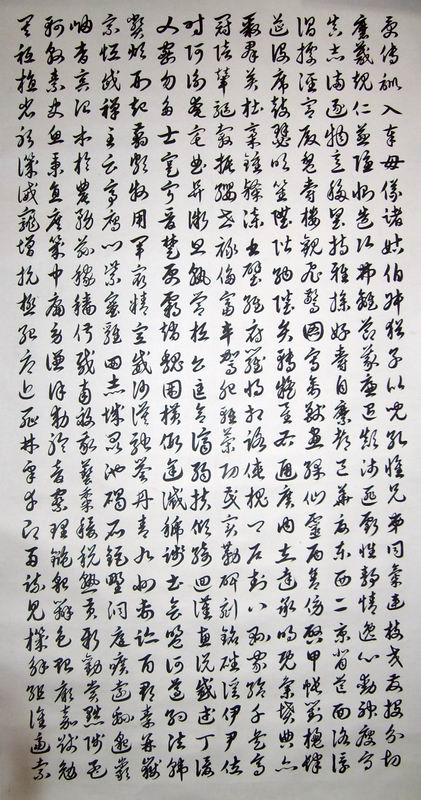 受傅訓入奉母儀諸姑伯叔猶子比兒孔懷兄弟同氣連枝交友投分切
磨箴規仁慈隱惻造次弗離節義廉退顛沛匪虧性靜情逸心動神疲守
真志滿逐物意移堅持雅操好爵自縻都邑華夏東西二京背芒面洛浮
渭據涇宮殿盤鬱樓觀飛驚圖寫禽獸畫綵仙靈丙舍傍啟甲帳對楹肆
筵設席鼓瑟吹笙陞階納陛弁轉疑星右通廣內左達承明既集墳典亦
聚群英杜稿鍾隸漆書壁經府羅將相路俠槐卿戶封八縣家給千兵高
冠陪輦驅轂振纓世祿侈富車駕肥輕策功茂實勒碑刻銘磻溪伊尹佐
時阿衡奄宅曲阜微旦孰營桓公匡合濟弱扶傾綺回漢惠說感武丁俊
乂密勿多士寔寧晉楚更霸趙魏困橫假途滅虢踐土會盟何遵約法韓
弊煩刑起翦頗牧用軍最精宣威沙漠馳譽丹青九州禹跡百郡秦并嶽
宗恆岱禪主云亭雁門紫塞雞田赤城昆池碣石鉅野洞庭曠遠綿邈巖
岫杳冥治本於農務茲稼穡俶載南畝我藝黍稷稅熟貢新勸賞黜陟孟
軻敦素史魚秉直庶幾中庸勞謙謹敕聆音察理鑒貌辨色貽厥嘉猷勉
其祗植省躬譏誡寵增抗極殆辱近恥林皋幸即兩疏見機解組誰逼索